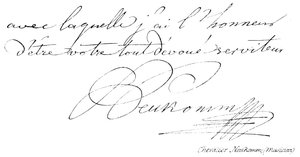 avec laquelle j'ai l'honneur
d'être votre tout dévoué serviteur
Neukomm
Chevalier Neukomm (Musicien)